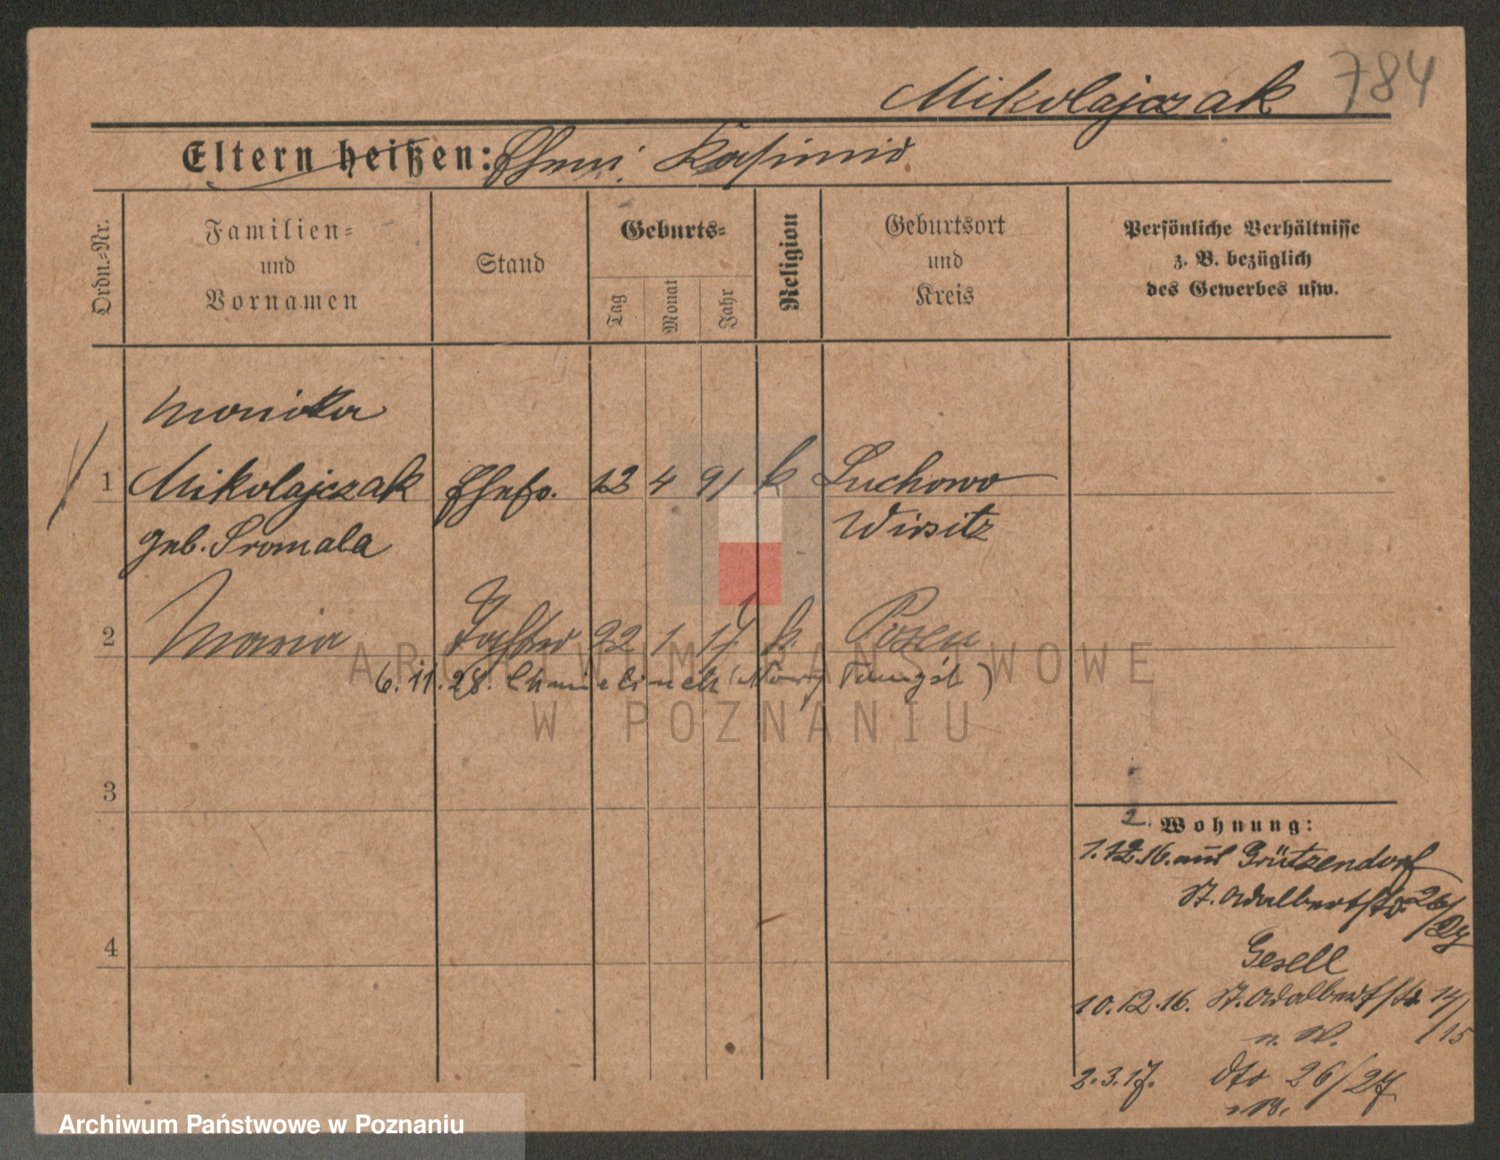 Mikolajczak 784
Eltern heißen: Ehem. Kasimir
Ordn.-Nr.
Familien-
und
Vornamen
Stand
Geburts-
Tag
Monat
Jahr
Religion
Geburtsort
und
Kreis
Persönliche Verhältnisse
z. B. bezüglich
des Gewerbes usw.
Monika
1 Mikolajczak Ehefr. 12 4 91 k Luchowo
geb. Sromala Wirsitz
2 Maria Tochter 22 1 17 k. Posen
6.11.28. (Nowy Tomyśl)
3
4
2.
Wohnung:
1.12.16. aus Grützendorf
St. Adalbertstr. 26/27
Gesell
10.12.16. St. Adalbertstr 14/15
n. W.
2.3.17. dto 26/27
ARCHIWUM PAŃSTWOWE
W POZNANIU
Archiwum Państwowe w Poznaniu